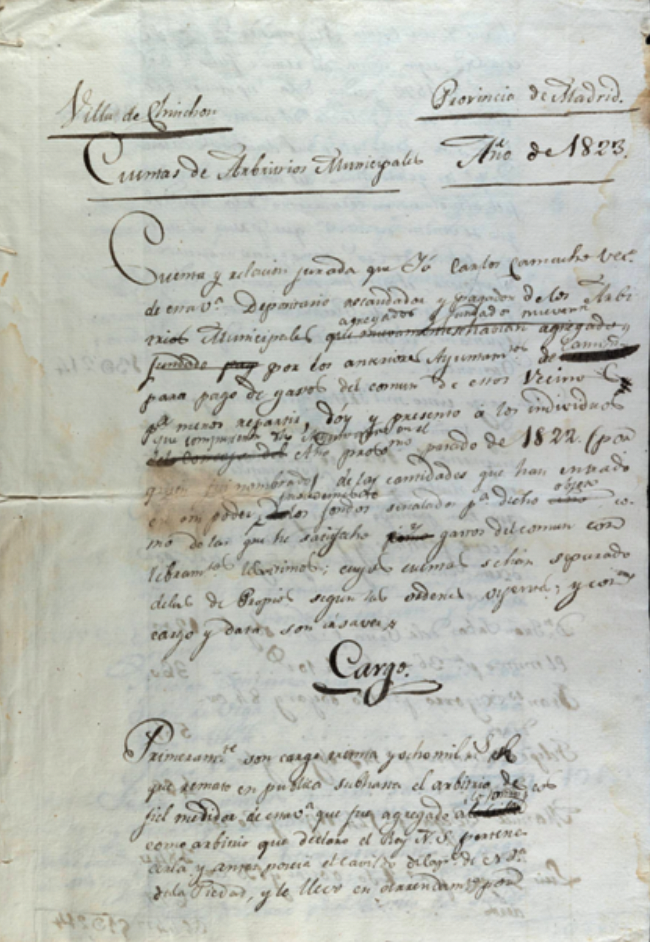 Villa de Chinchon
Provincia de Madrid.
Cuentas de Arbitrios Municipales
Año de 1823.
Cuenta y relacion jurada que Yo Carlos Camacho vec.º
de esta v.ª Depositario recaudador y pagador de los Arbi
agregados y
trios Municipales que agregado y
por los anteriores Ayuntam.tos de
para pago de gastos del comun de estos Vecinos
p.ª menos repartir, doy y presento á los individuos
que componian el
Año pasado de 1822. (por
quien fui nombrado) de las cantidades que han entrado
en mi poder, los fondos señalados p.ª dicho objeto co
mo de las que he satisfecho gastos del comun con
libram.tos lexitimos; cuyas cuentas se han separado
de las de Propios segun las ordenes y con
cargo y data son a saver
Cargo.
Primeram.te son cargo y ocho mil r.s
que remato en publica subhasta el arbitrio de
fiel medidor de esta v.ª que fue agregado a
como arbitrio que declaro el Rey N. S. pertene
cerla, y antes poseia el Cavildo de N.ª S.ª
de la Piedad, y le llevo en arrendam.to por